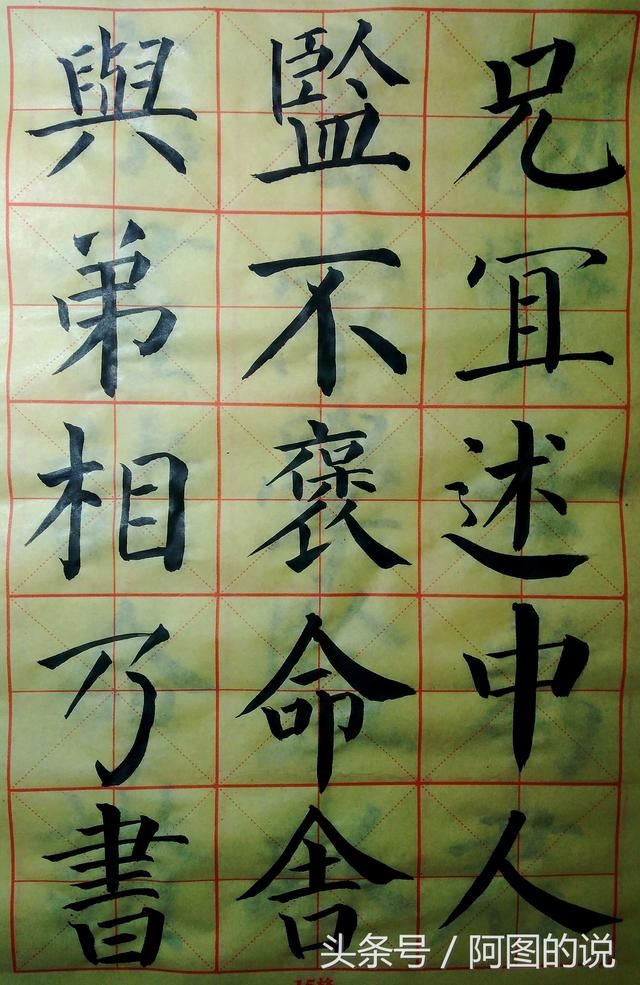 兄冝述中人
監不褒命舍
與弟相乃書
头条号 / 阿图的说